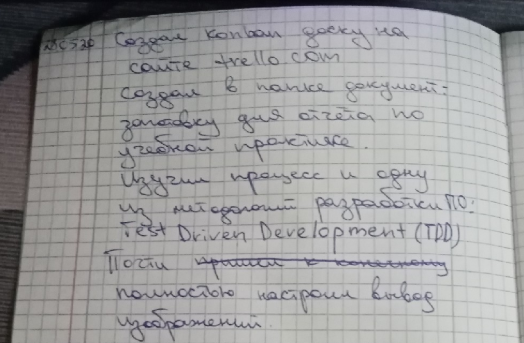 Создал канбан доску на
сайте trello.com
создал в папке документ-
заготовку для отчёта по
учебной практике.
Изучил процесс и одну
из методологий разработки ПО:
Test Driven Development (TDD)
Почти пришли к конечному
полностью настроил вывод
изображений.